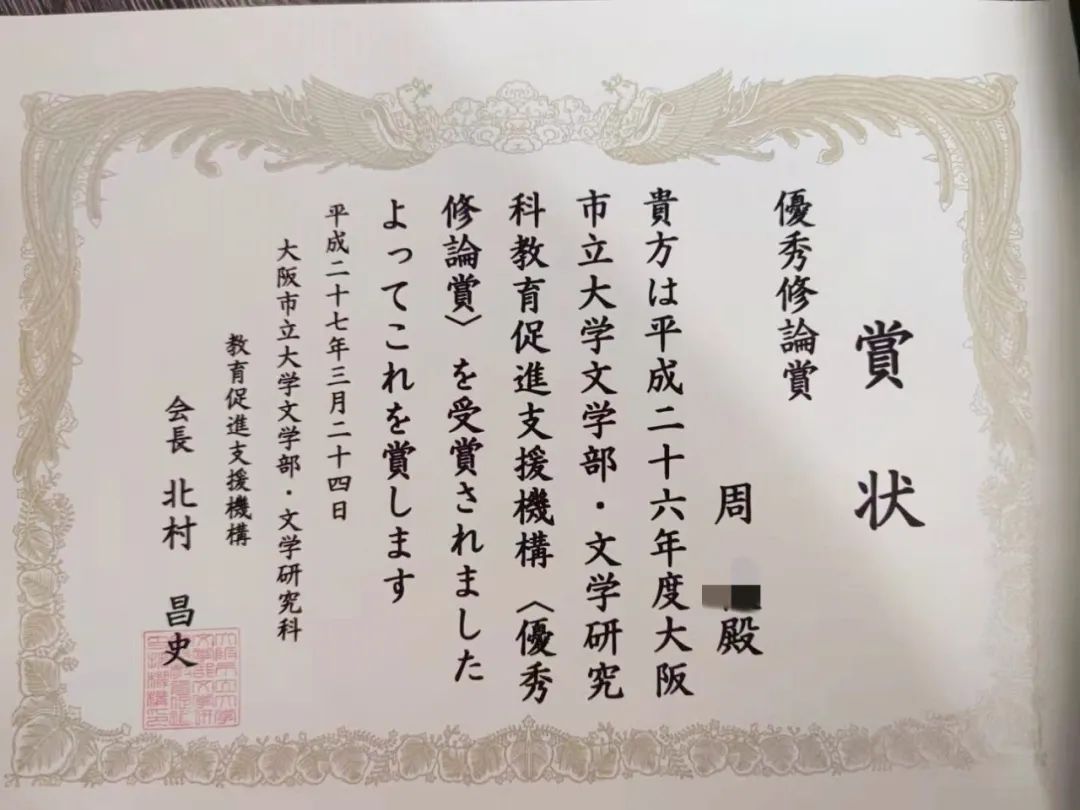 賞状
優秀修論賞
周
殿
貴方は平成二十六年度大阪
市立大学文学部・文学研究
科教育促進支援機構〈優秀
修論賞〉を受賞されました
よってこれを賞します
平成二十七年三月二十四日
大阪市立大学文学部・文学研究科
教育促進支援機構
会長 北村 昌史